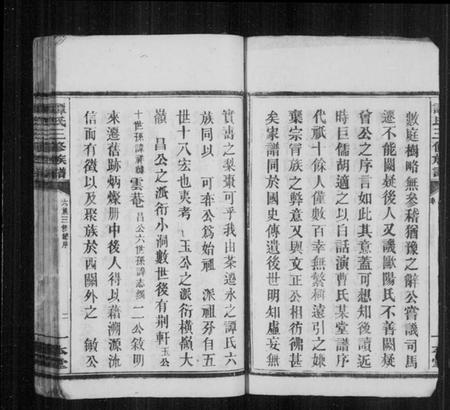 數庭樹略無參稽猶豫之辭公嘗議司馬
遷不能闕疑後人又譏歐陽氏不善闕疑
曾公之序言如此其意蓋可想知後讀近
時巨儒胡適之以白話演曹氏某堂譜序
代祇十餘人僅數百幸無繁稱遠引之嫌
棄宗冒族之弊意又與文正公相彷彿甚
矣家譜同於國史傳遺後世明知虛妄無
實當之梨棗可乎我由茶遷永之譚氏六
族同以 可 公為始祖 派祖 自五
世十八宏也吏考 玉公之派衍橫嶺大
嶺 昌公之派衍小洞數世後有荊軒 玉公
十世孫諱 雲菴 昌公六世孫諱志 一二公敘明
來遷舊跡炳燦册中後人得以藉溯源流
信而有徵以及聚族於西關外之 敏公
譚氏三修族譜
六族三修 序
二
一本堂
譚氏三修族譜